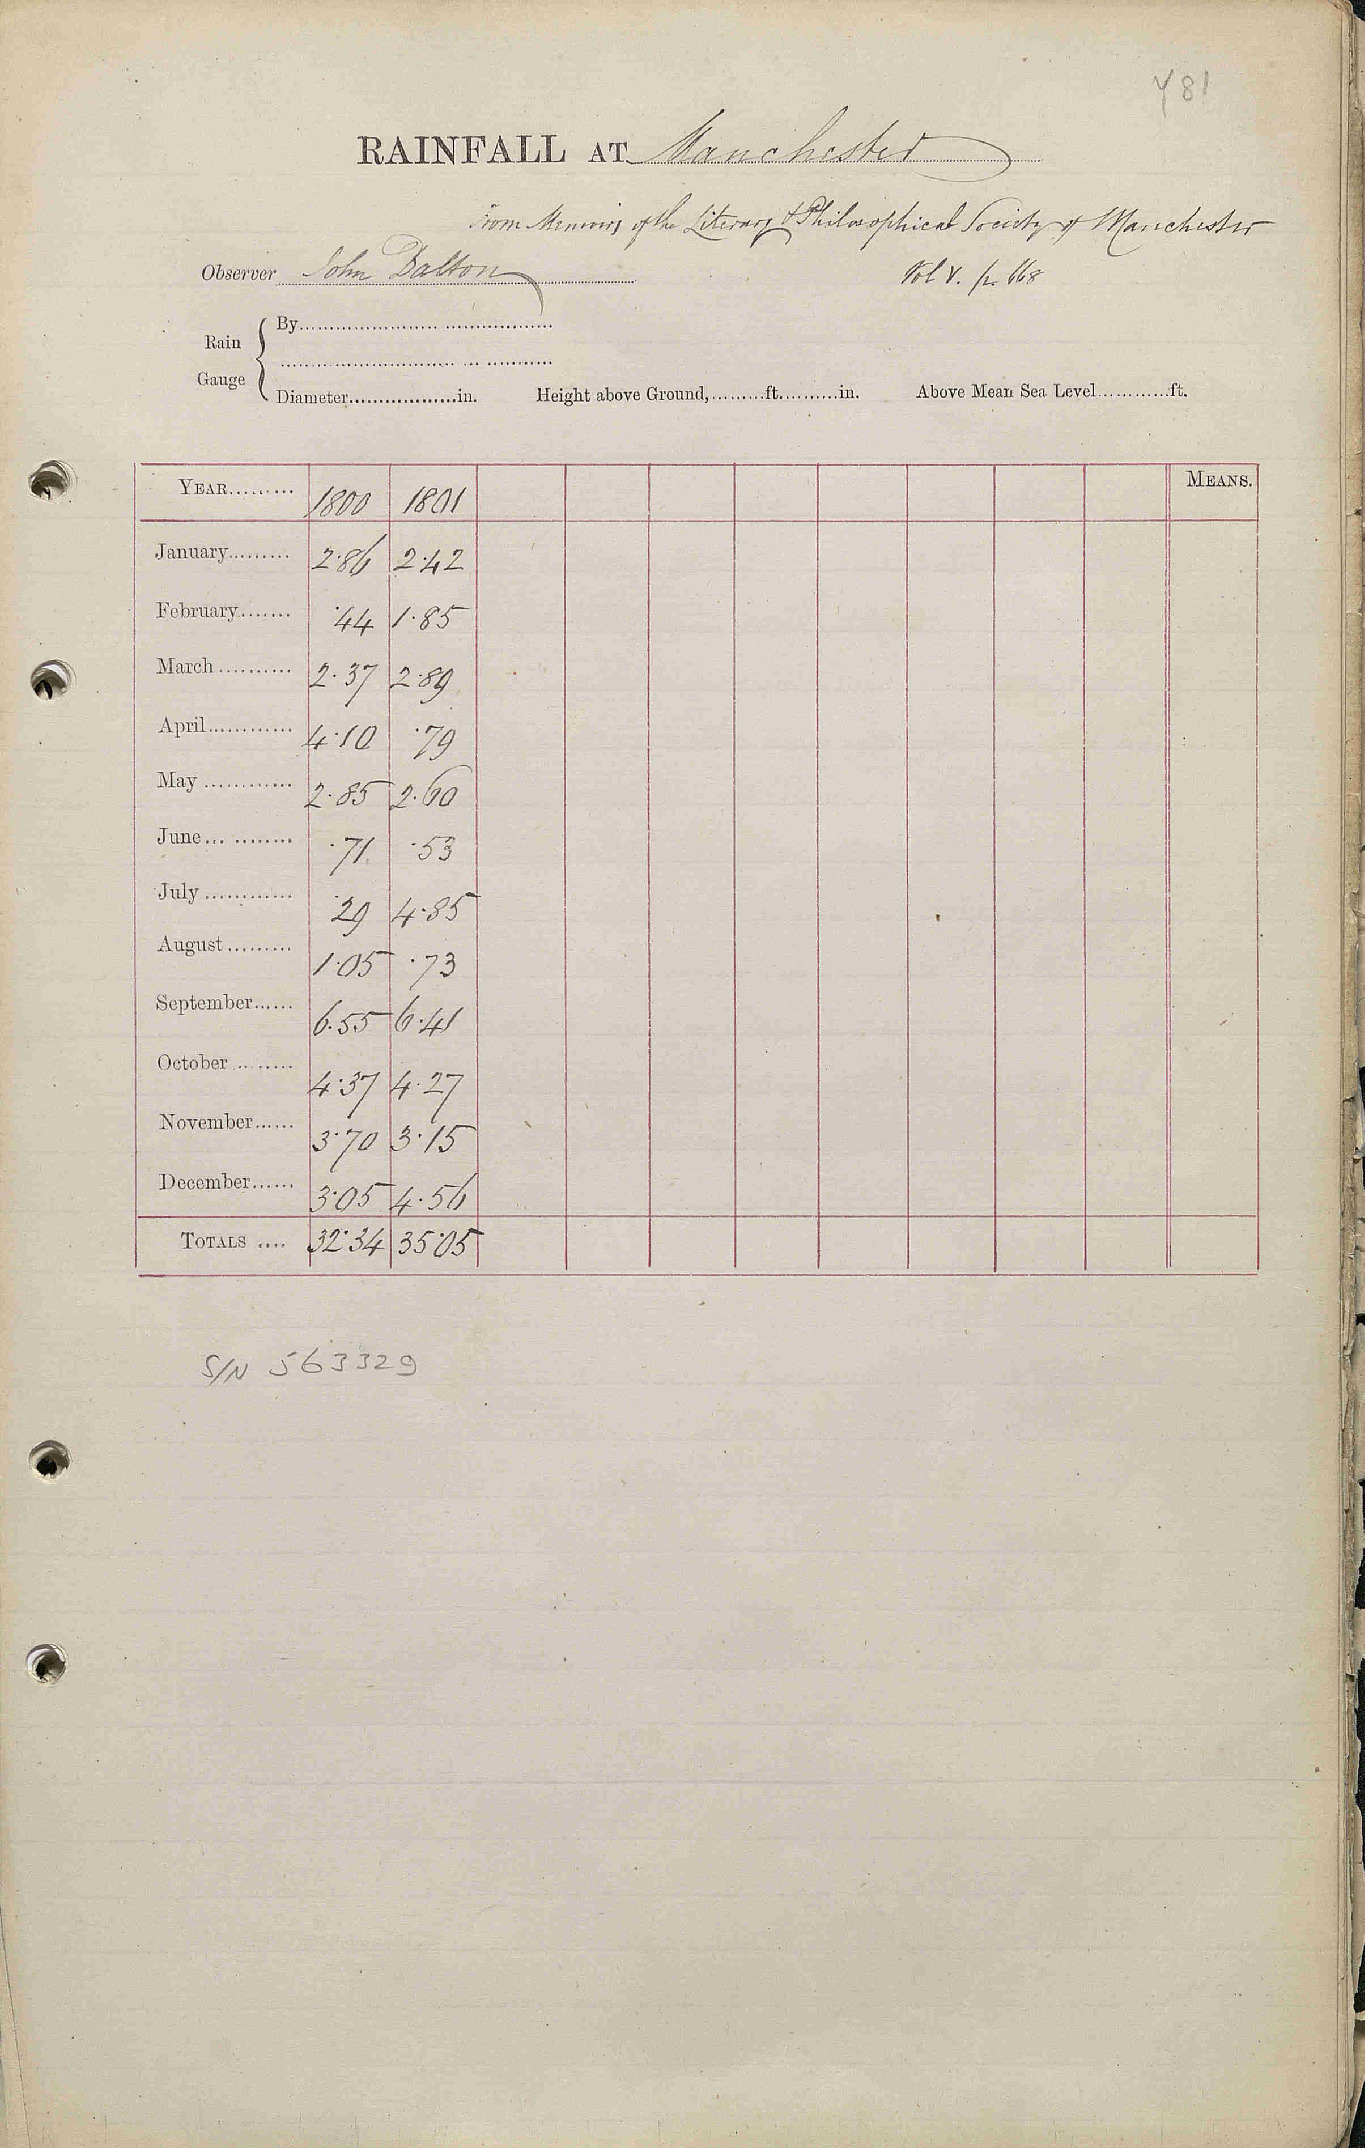 Y81
RAINFALL AT Manchester
From Memoirs of the Literary & Philosophical Society of Manchester
Observer John Dalton Vol V. p. 668
Rain Gauge { By
Diameter in. Height above Ground, ft. in. Above Mean Sea Level ft.
YEAR 1800 1801 MEANS.
January 2.86 2.42
February .44 1.85
March 2.37 2.89
April 4.10 .79
May 2.85 2.60
June .71 .53
July .29 4.85
August 1.05 .73
September 6.55 6.41
October 4.37 4.27
November 3.70 3.15
December 3.05 4.56
TOTALS 32.34 35.05
S/N 563329